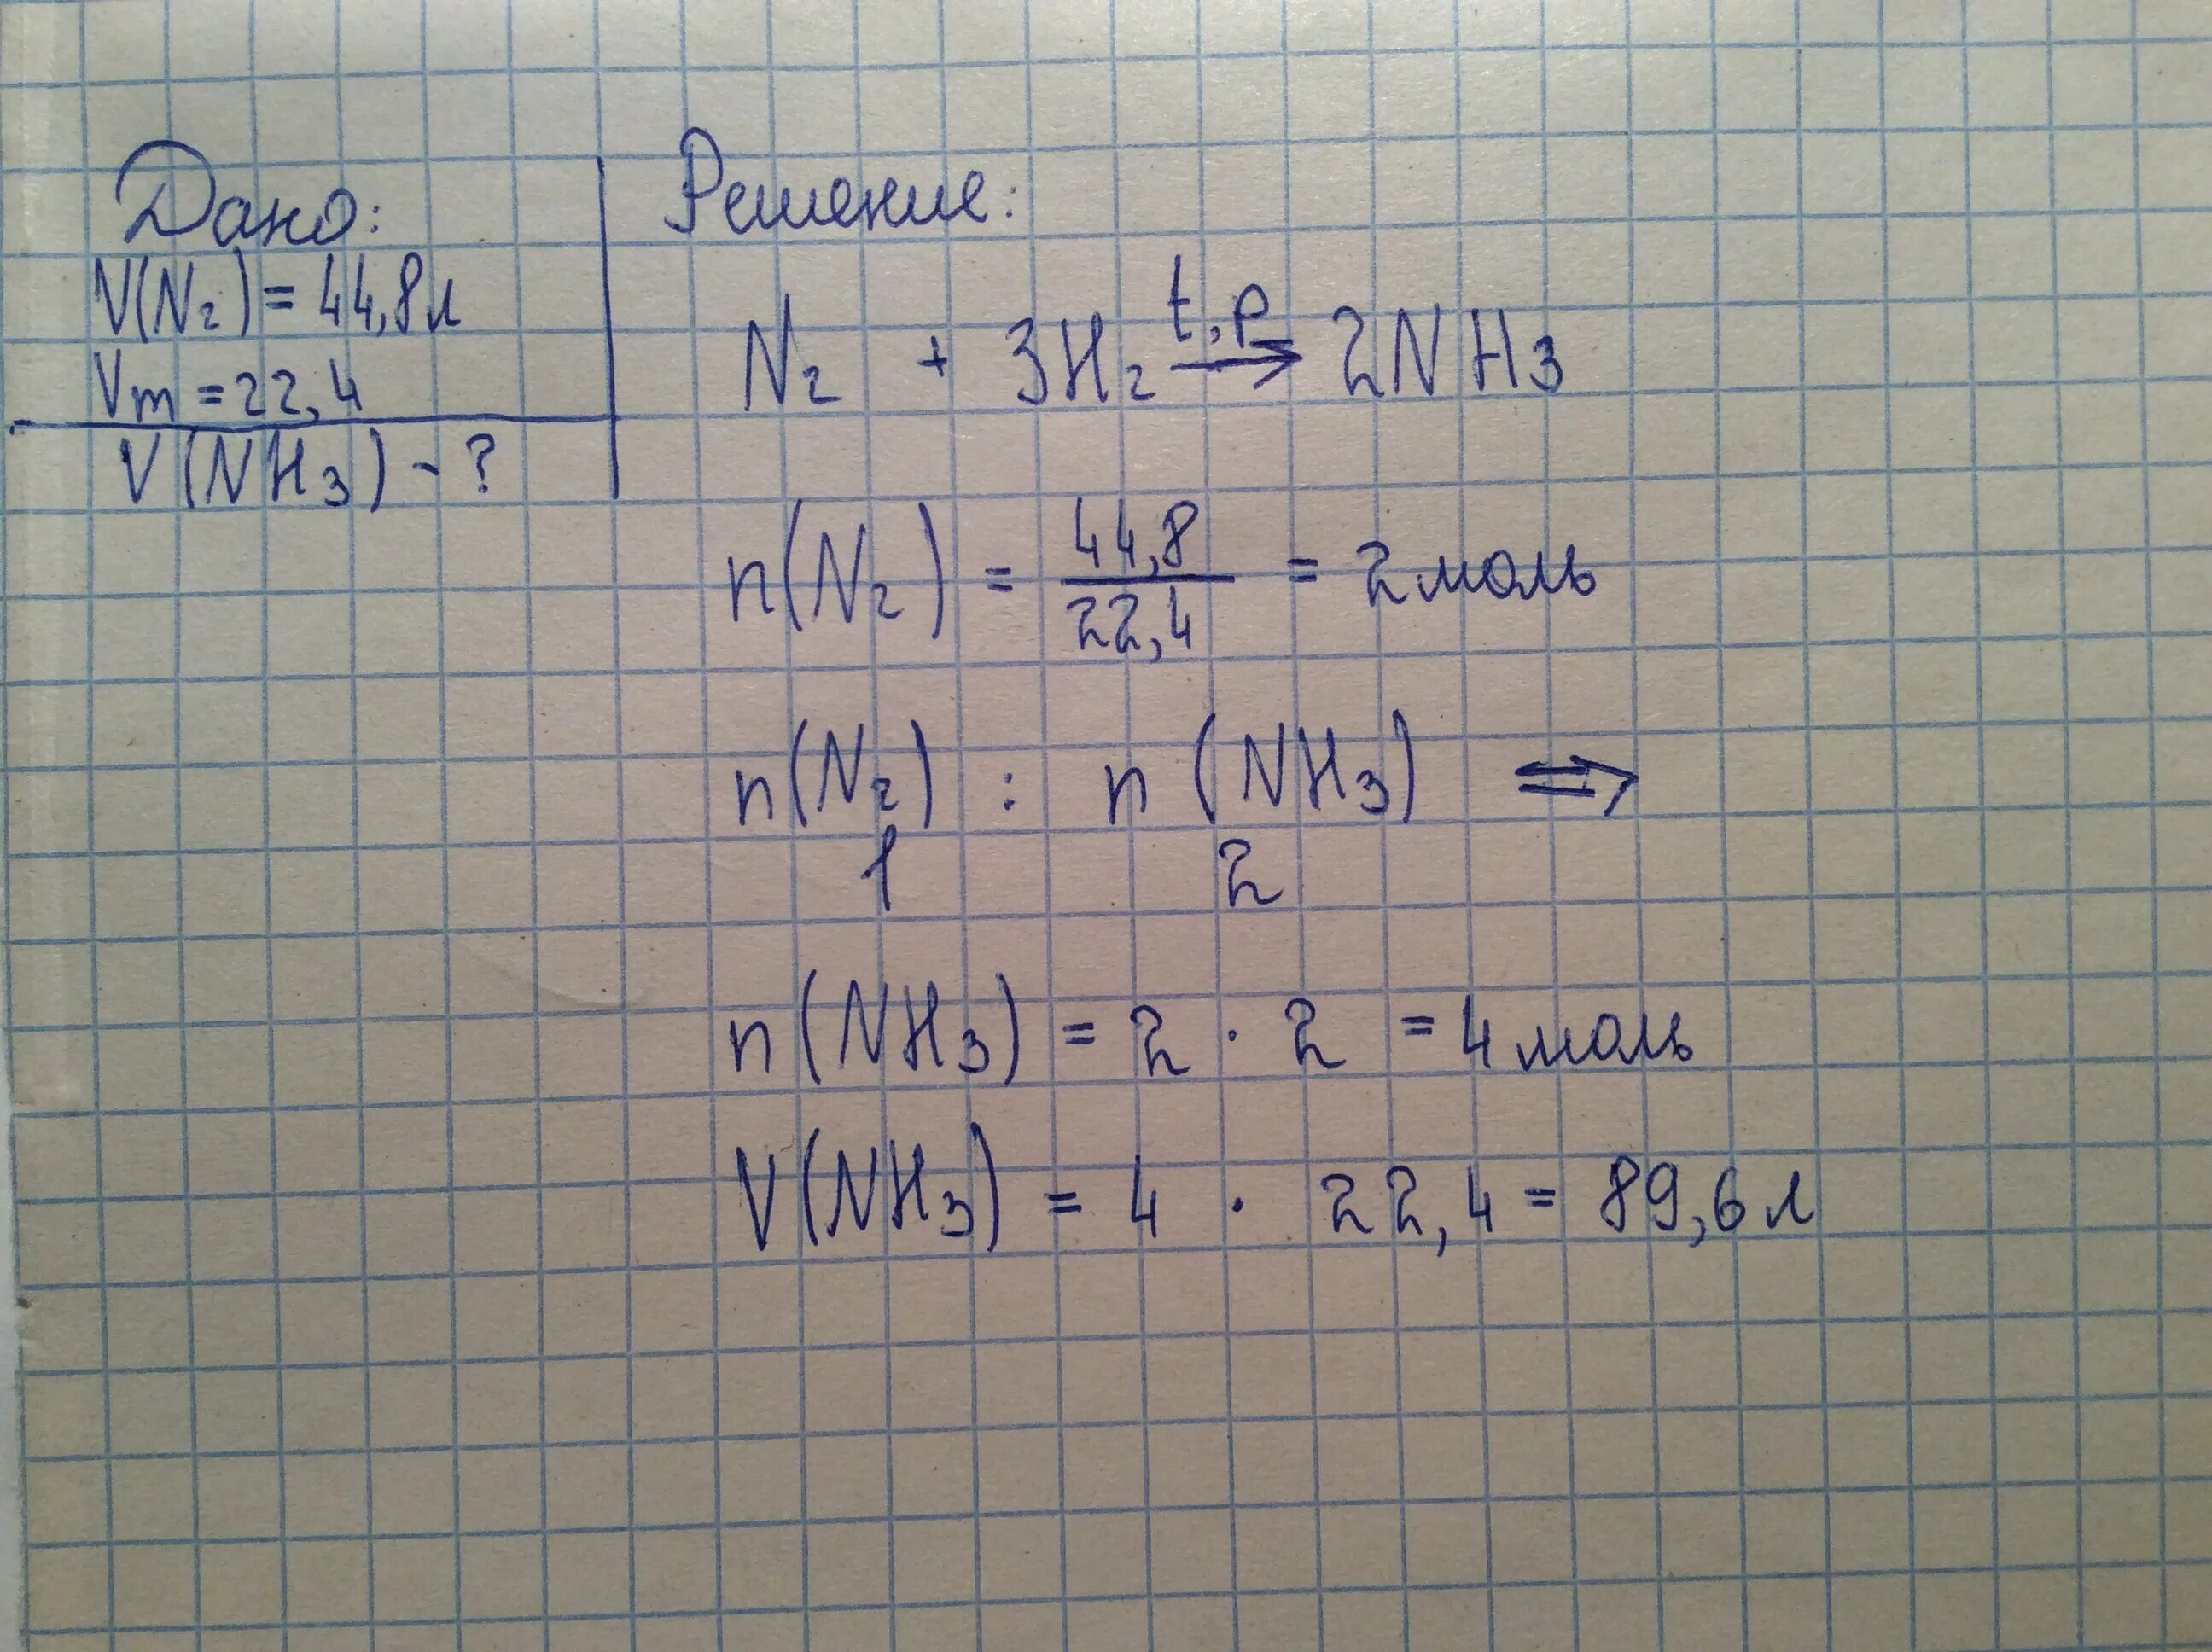 Дано:
V(N₂) = 44,8л
Vm = 22,4
V(NH₃) - ?
Решение:
N₂ + 3H₂ t,p→ 2NH₃
n(N₂) = 44,8/22,4 = 2моль
n(N₂) : n(NH₃) ⇒
1 2
n(NH₃) = 2 · 2 = 4моль
V(NH₃) = 4 · 22,4 = 89,6л